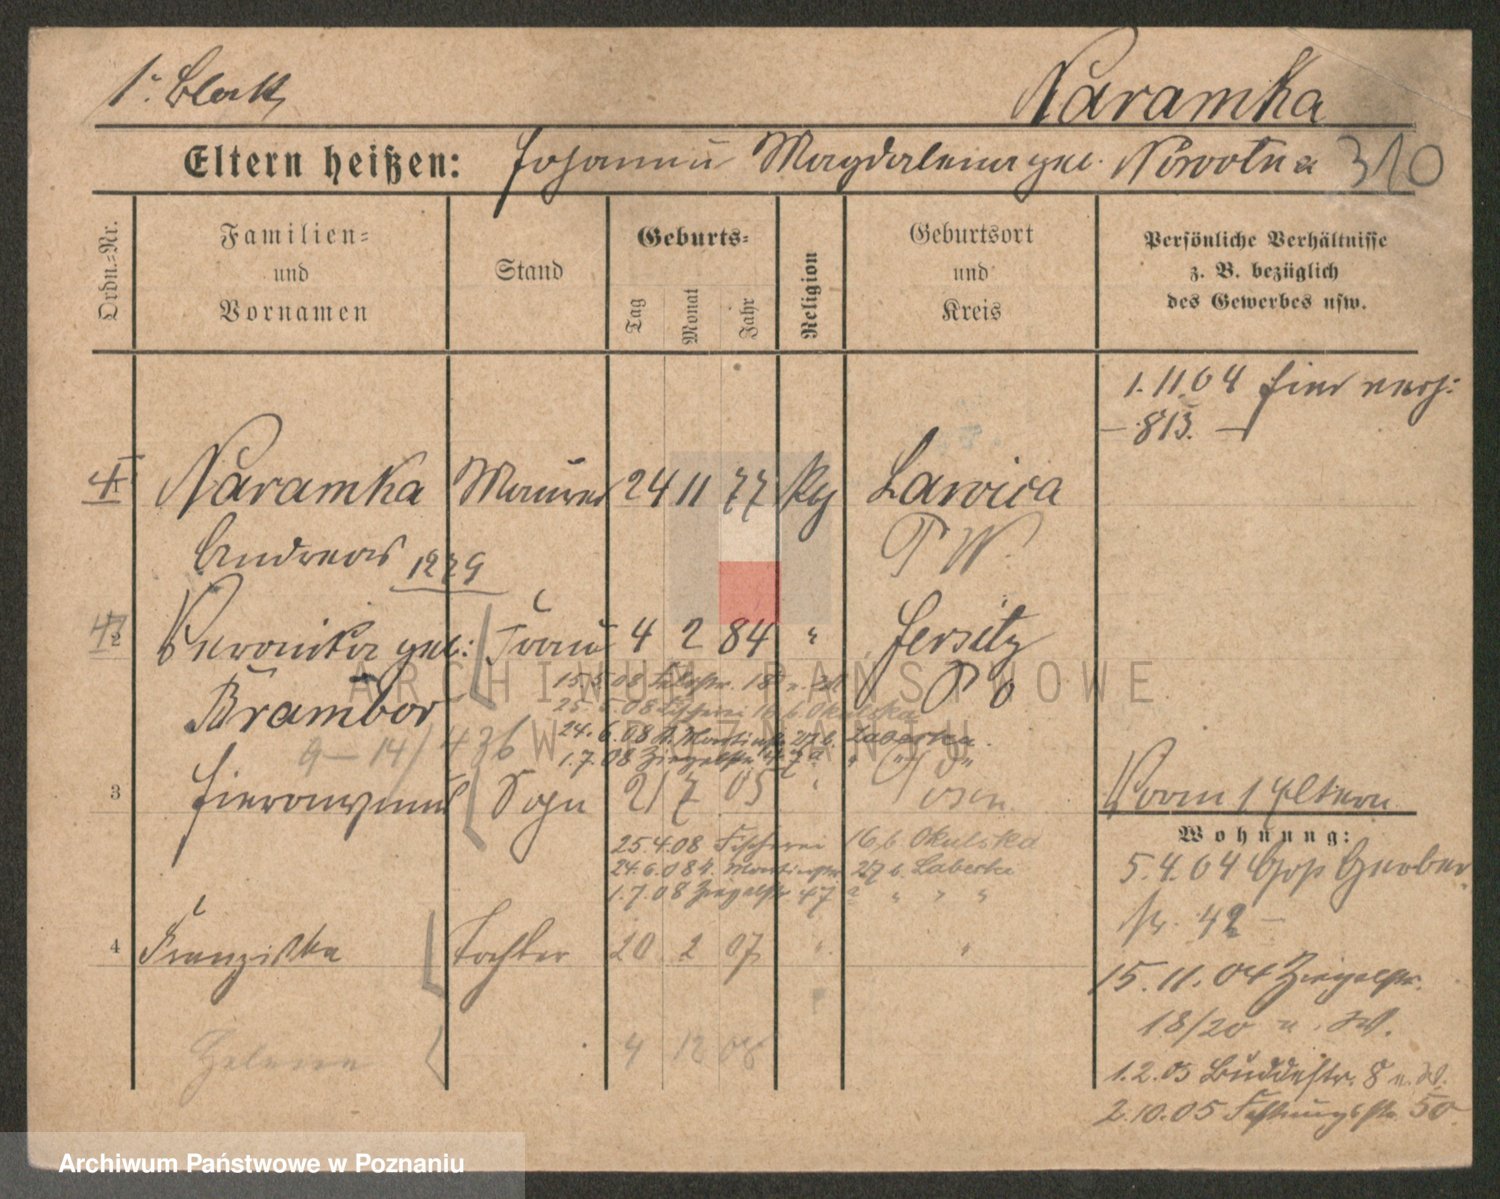 1. Blatt
Naramka
Eltern heißen: Johann u Magdalena geb. Nowotna 310
Ordn.-Nr.
Familien-
und
Vornamen
Stand
Geburts-
Tag
Monat
Jahr
Religion
Geburtsort
und
Kreis
Persönliche Verhältnisse
z. B. bezüglich
des Gewerbes usw.
1.11.04 hier
— 813. —
Naramka Maurer 24 11 77 Lawica
Andreas P W.
2 Veronika geb: Frau 4 2 84 " Jersitz
Brambor P O
9 — 14/ 436
15.5.08
25.5.08 Fischerei 16b Okulska
24.6.08 St. Martinstr 27b. Laberka
1.7.08 Ziegelstr. 47a " " "
3 Hieronymus Sohn 21 7 05 " Posen
25.4.08 Fischerei 16b Okulska
24.6.08 St. Martinstr 27b. Laberka
1.7.08 Ziegelstr 47a " " "
4 Franziska Tochter 20 2 07 " "
Helene 4 12 08
Vorm 1 Eltern
Wohnung:
5.4.04 Gerber
str. 42 —
15.11.04 Ziegelstr.
18/20 u. W.
1.2.05 Buddestr. 8 u. W.
2.10.05 Festungsstr. 50
ARCHIWUM PAŃSTWOWE
W POZNANIU
Archiwum Państwowe w Poznaniu